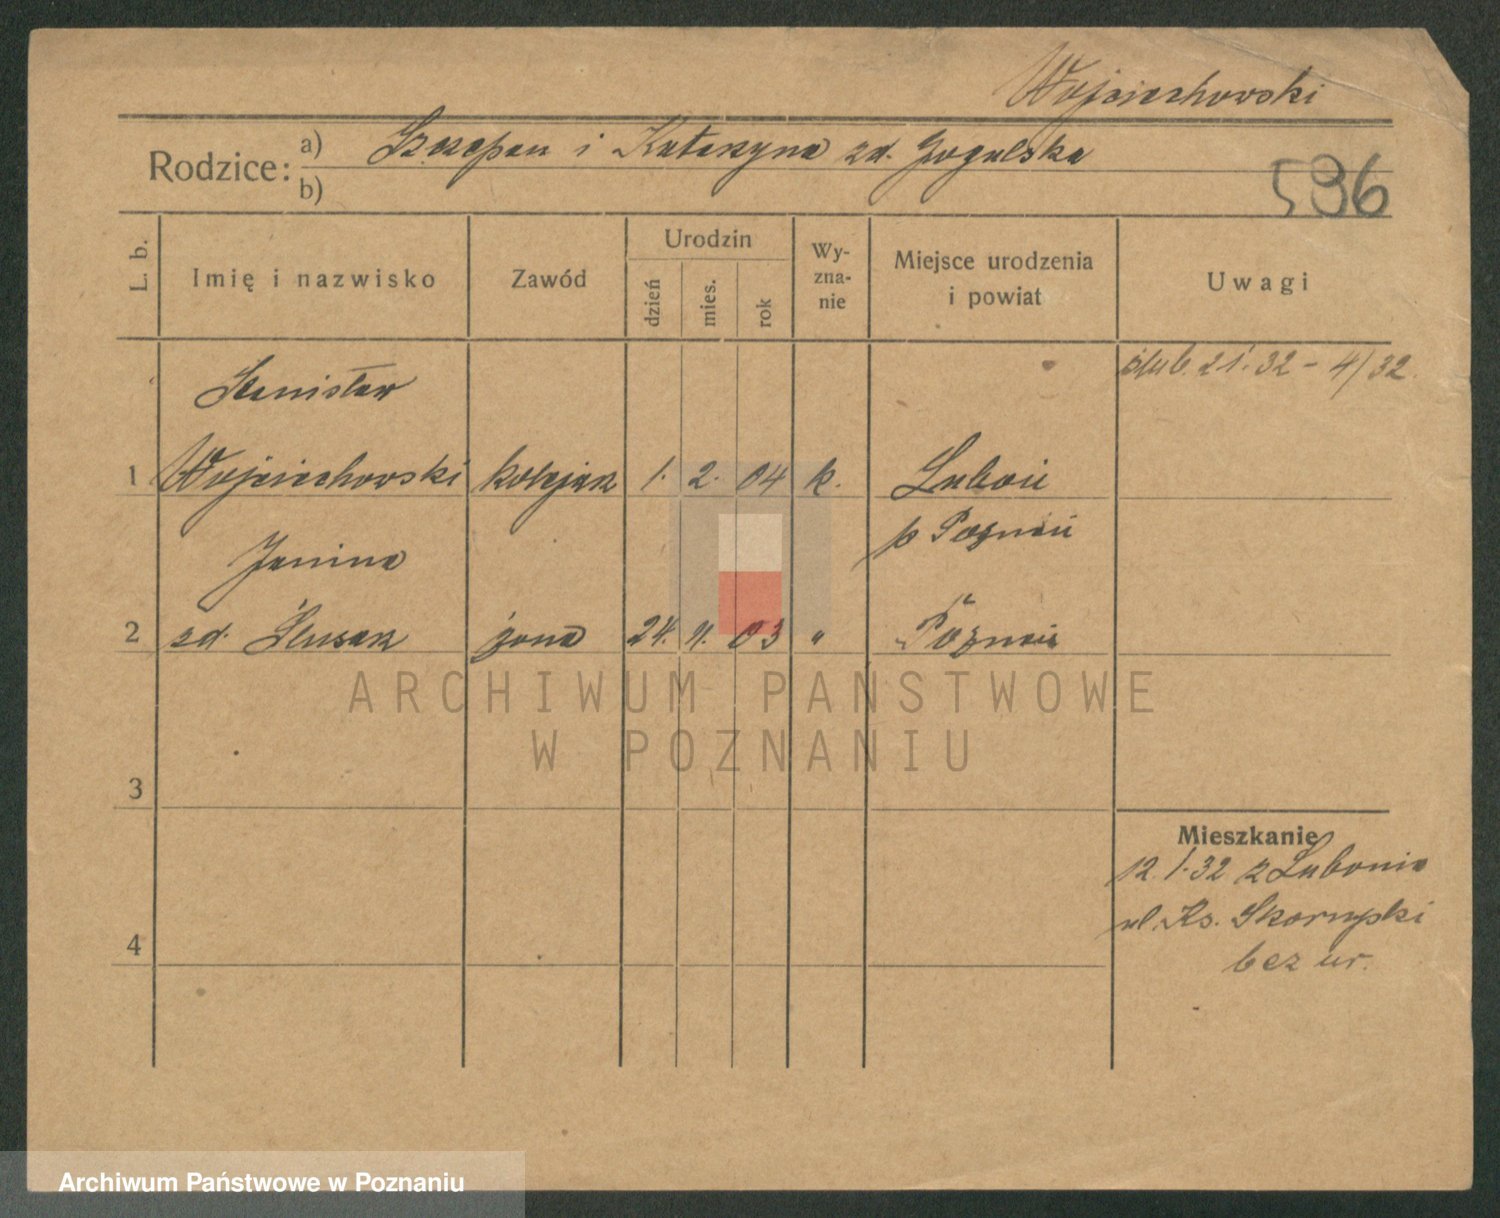 Wojciechowski
Rodzice:
a) Szczepan i Katarzyna zd. Gogulska
b)
536
L. b.
Imię i nazwisko
Zawód
Urodzin
dzień
mies.
rok
Wy-
zna-
nie
Miejsce urodzenia
i powiat
Uwagi
ślub. 21.1.32 - 4/32.
Stanisław
1 Wojciechowski kolejarz 1. 2. 04 k. Luboń
p Poznań
Janina
2 zd. Ślusarz żona 24. 11. 03 " Poznań
ARCHIWUM PAŃSTWOWE
W POZNANIU
3
Mieszkanie
12.1.32 z Lubonia
ul. Ks. Skorupki
4
bez nr.
Archiwum Państwowe w Poznaniu